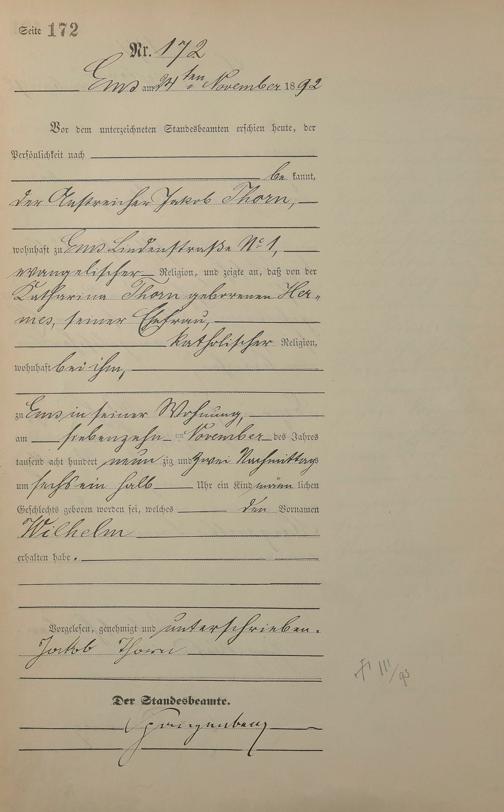 Seite 172
Nr. 172
Ems am 24ten November 1892
Vor dem unterzeichneten Standesbeamten erschien heute, der
Persönlichkeit nach
be kannt,
der Anstreicher Jakob Thorn,
wohnhaft zu Ems Lindenstraße No 1,
evangelischer Religion, und zeigte an, daß von der
Katharina Thorn geborenen Her-
mes, seiner Ehefrau,
katholischer Religion,
wohnhaft bei ihm,
zu Ems in seiner Wohnung,
am siebenzehn ten November des Jahres
tausend acht hundert neun zig und zwei Nachmittags
um sechs ein halb Uhr ein Kind männ lichen
Geschlechts geboren worden sei, welches den Vornamen
Wilhelm
erhalten habe.
Vorgelesen, genehmigt und unterschrieben.
Jakob Thorn
Der Standesbeamte.
Spangenberg